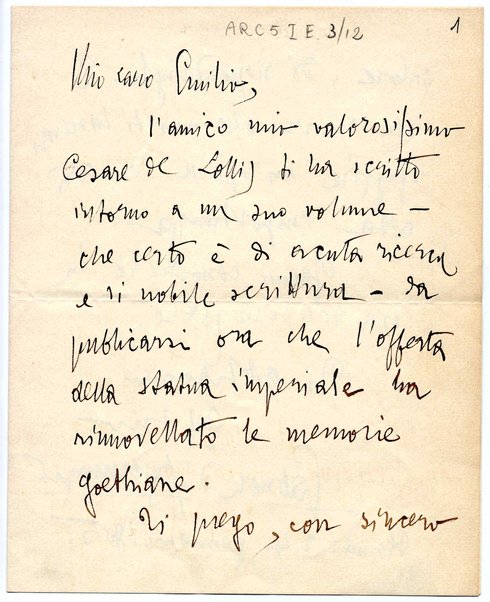 ARC 5 I E 3/12
1
Mio caro Emilio,
l'amico mio valorosissimo
Cesare de Lollis ti ha scritto
intorno a un suo volume –
che certo è di acuta ricerca
e di nobile scrittura – da
publicarsi ora che l'offerta
della statua imperiale ha
rinnovellato le memorie
goethiane.
Ti prego, con sincero